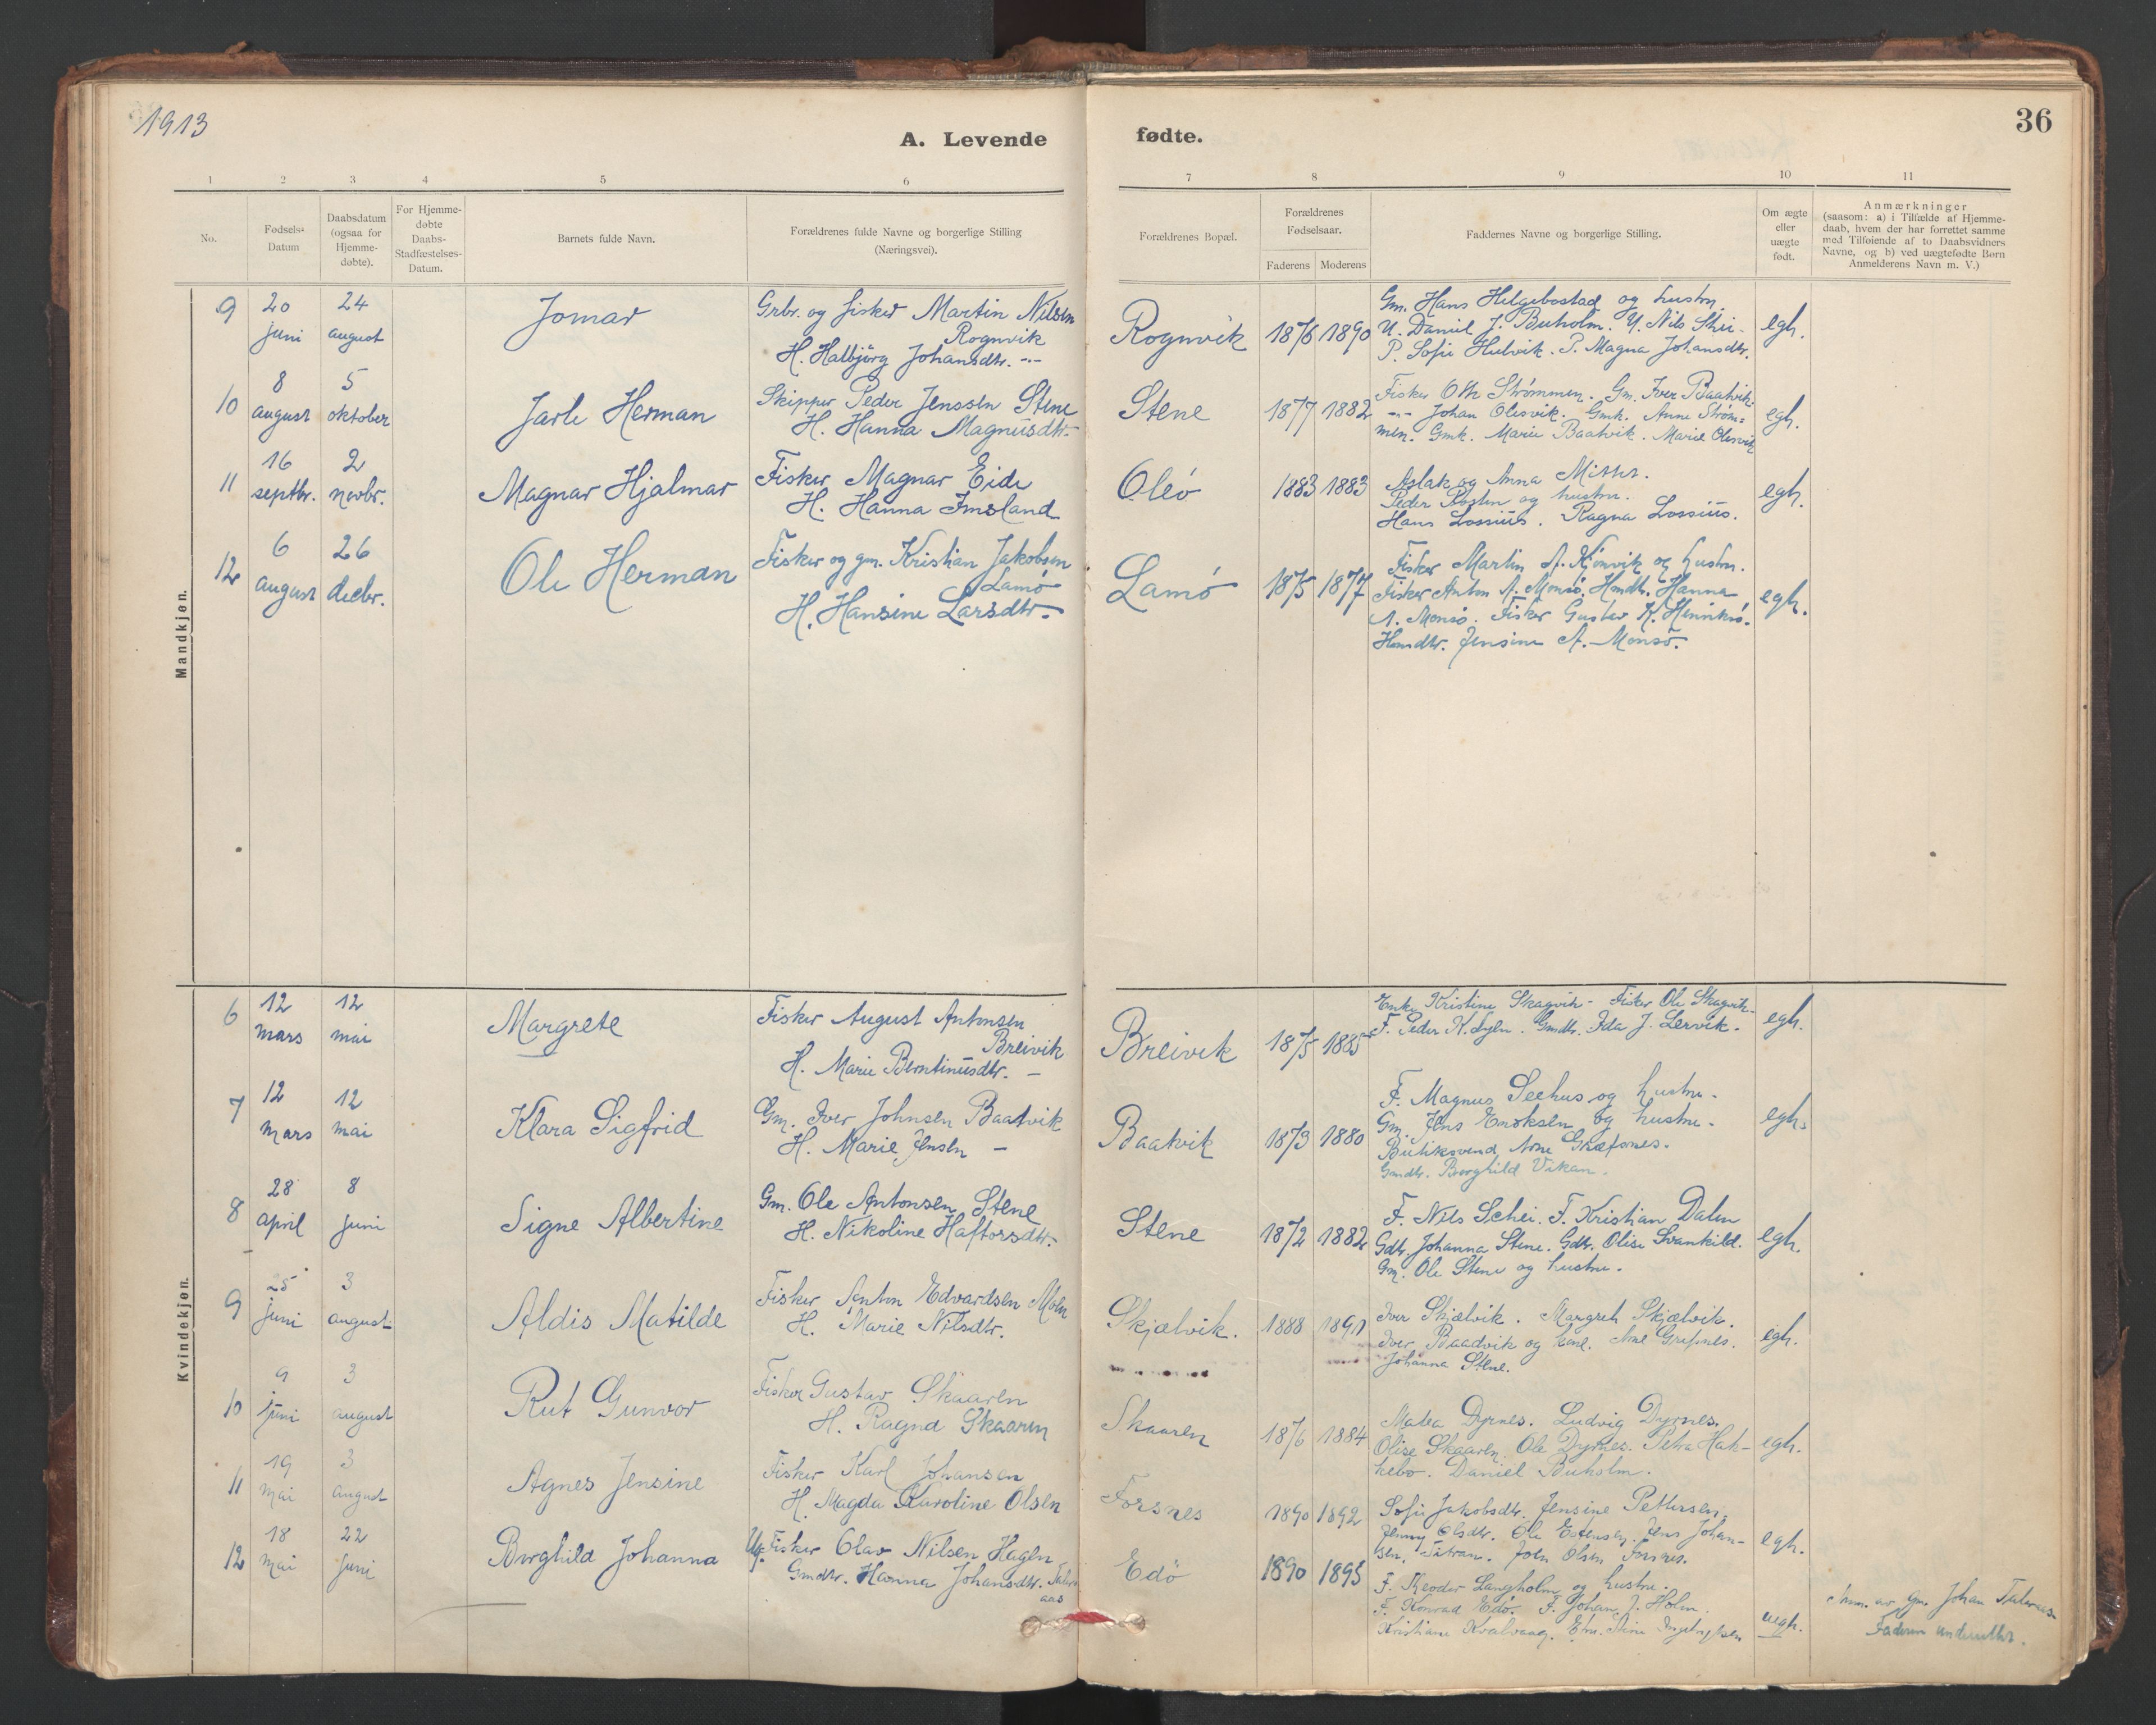 1913
A. Levende fødte.
36
1 2 3 4 5 6 7 8 9 10 11
No.
Fødsels-
Datum
Daabsdatum
(ogsaa for
Hjemme-
døbte).
For Hjemme-
døbte
Daabs-
Stadfæstelses-
Datum.
Barnets fulde Navn.
Forældrenes fulde Navne og borgerlige Stilling
(Næringsvei).
Forældrenes Bopæl.
Forældrenes
Fødselsaar.
Faderens Moderens
Faddernes Navne og borgerlige Stilling.
Om ægte
eller
uægte
født.
Anmærkninger
(saasom: a) i Tilfælde af Hjemme-
daab, hvem der har forrettet samme
med Tilføiende af to Daabsvidners
Navne, og b) ved uægtefødte Børn
Anmelderens Navn m. V.)
Mandkjøn.
9
20
juni
24
august
Jomar
Grbr. og fisker Martin Nilsen
Rognvik
H. Halbjörg Johansdtr. -"-
Rognvik
1876 1890
Gm. Hans Helgebostad og hustru.
U. Daniel J. Buholm. U. Nils
P. Sofie Hulvik. P. Magna Johansdtr.
egh.
10
8
august
5
oktober
Jarle Herman
Skipper Peder Jenssen Stene
H. Hanna Magnusdtr.
Stene
1877 1882
Fisker Strømmen. Gm. Iver Baatvik.
-"- Johan Olesvik. Gmk. Anne Strøm=
men. Gmk. Marie Baatvik. Marie Olesvik
egh.
11
16
septbr.
2
novbr.
Magnar Hjalmar
Fisker Magnar Eide
H. Hanna Imsland
Oleö
1883 1883
Aslak og Anna
Peder og hustru.
Hans Lossius. Ragna Lossius.
egh.
12
6
august
26
decbr.
Ole Herman
Fisker og gm. Kristian Jakobsen
Lamö
H. Hansine Larsdtr.
Lamö
1875 1877
Fisker Martin A. Kjönvik og hustru.
Fisker Anton A. Monsö. Hanna
A. Monsö. Fisker Gustav K.
Jensine A. Monsö.
egh.
Kvindekjøn.
6
12
mars
12
mai
Margrete
Fisker August Antonsen
Breivik
H. Marie Berntinusdtr. -
Breivik
1875 1885
Enke Kristine Skagvik - Fisker Ole Skagvik.
F. Peder K. Gmdtr. Ida J. Lervik.
egh.
7
12
mars
12
mai
Klara Sigfrid
Gm. Iver Johnsen Baatvik
H. Marie Jensen -
Baatvik
1873 1880
F. Magnus Seehus og hustru.
Gm. Jens Enoksen og hustru.
Butiksvend Arne Græfsnes.
Gmdtr. Borghild Vikan.
egh.
8
28
april
8
juni
Signe Albertine
Gm. Ole Antonsen Stene
H. Nikoline Haftorsdtr.
Stene
1872 1882
F. Nils Schei. F. Kristian Dalen
Gdtr. Johanna Stene. Gdtr. Olise Svankild.
Gm. Ole Stene og hustru.
egh.
9
25
juni
3
august
Aldis Matilde
Fisker Anton Edvardsen Moen
H. Marie Nilsdtr.
Skjælvik.
1888 1891
Iver Skjælvik. Margreth Skjælvik.
Iver Baadvik og kone. Arne Græfsnes.
Johanna Stene.
egh.
10
9
juni
3
august
Rut Gunvor
Fisker Gustav Skaaren
H. Ragna Skaaren
Skaaren
1876 1884
Matea Dyrnes. Ludvig Dyrnes.
Olise Skaaren Ole Dyrnes. Petra Hak-
kebo. Daniel Buholm.
egh.
11
19
mai
3
august
Agnes Jensine
Fisker Karl Johansen
H. Magda Karoline Olsen
Forsnes
1890 1892
Sofie Jakobsdtr. Jensine Pettersen,
Jenny Olsdtr. Ole Estensen. Jens Johan-
sen, Titran. Joen Olsen Forsnes.
egh.
12
18
mai
22
juni
Borghild Johanna
Ug. Fisker Olav Nilsen Hagen
Gmdtr. Hanna Johansdtr.
aas
Edö
1890 1895
F. Langholm og hustru.
F. Konrad Edö. F. Johan J. Holm.
Kristiane Kvalvaag.
uegh.
Anm. av gm. Johan
Faderen underrettet.